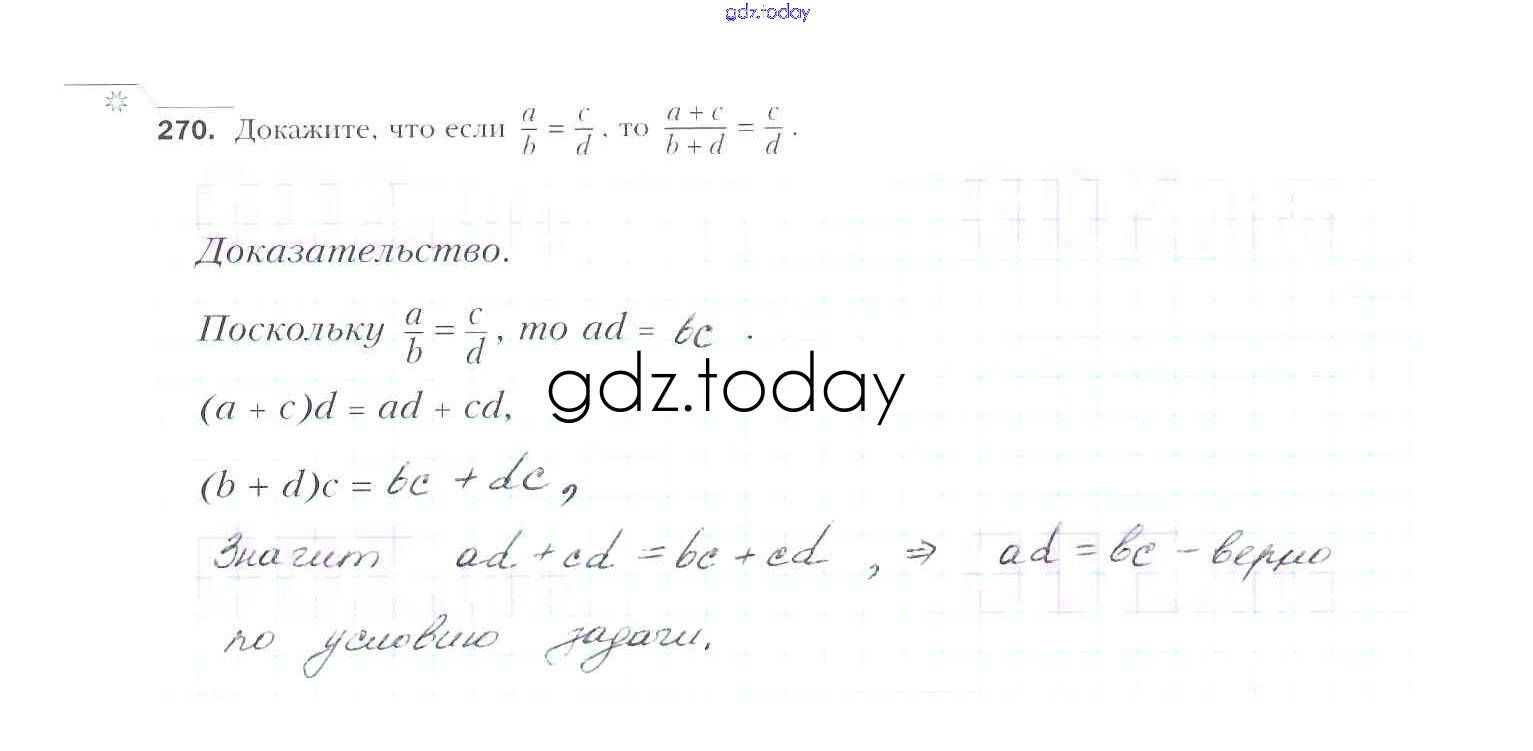 gdz.today
270. Докажите, что если a/b = c/d, то (a + c)/(b + d) = c/d.
Доказательство.
Поскольку a/b = c/d, то ad = bc.
gdz.today
(a + c)d = ad + cd,
(b + d)c = bc + dc,
Значит ad + cd = bc + cd, ⇒ ad = bc – верно
по условию задачи.